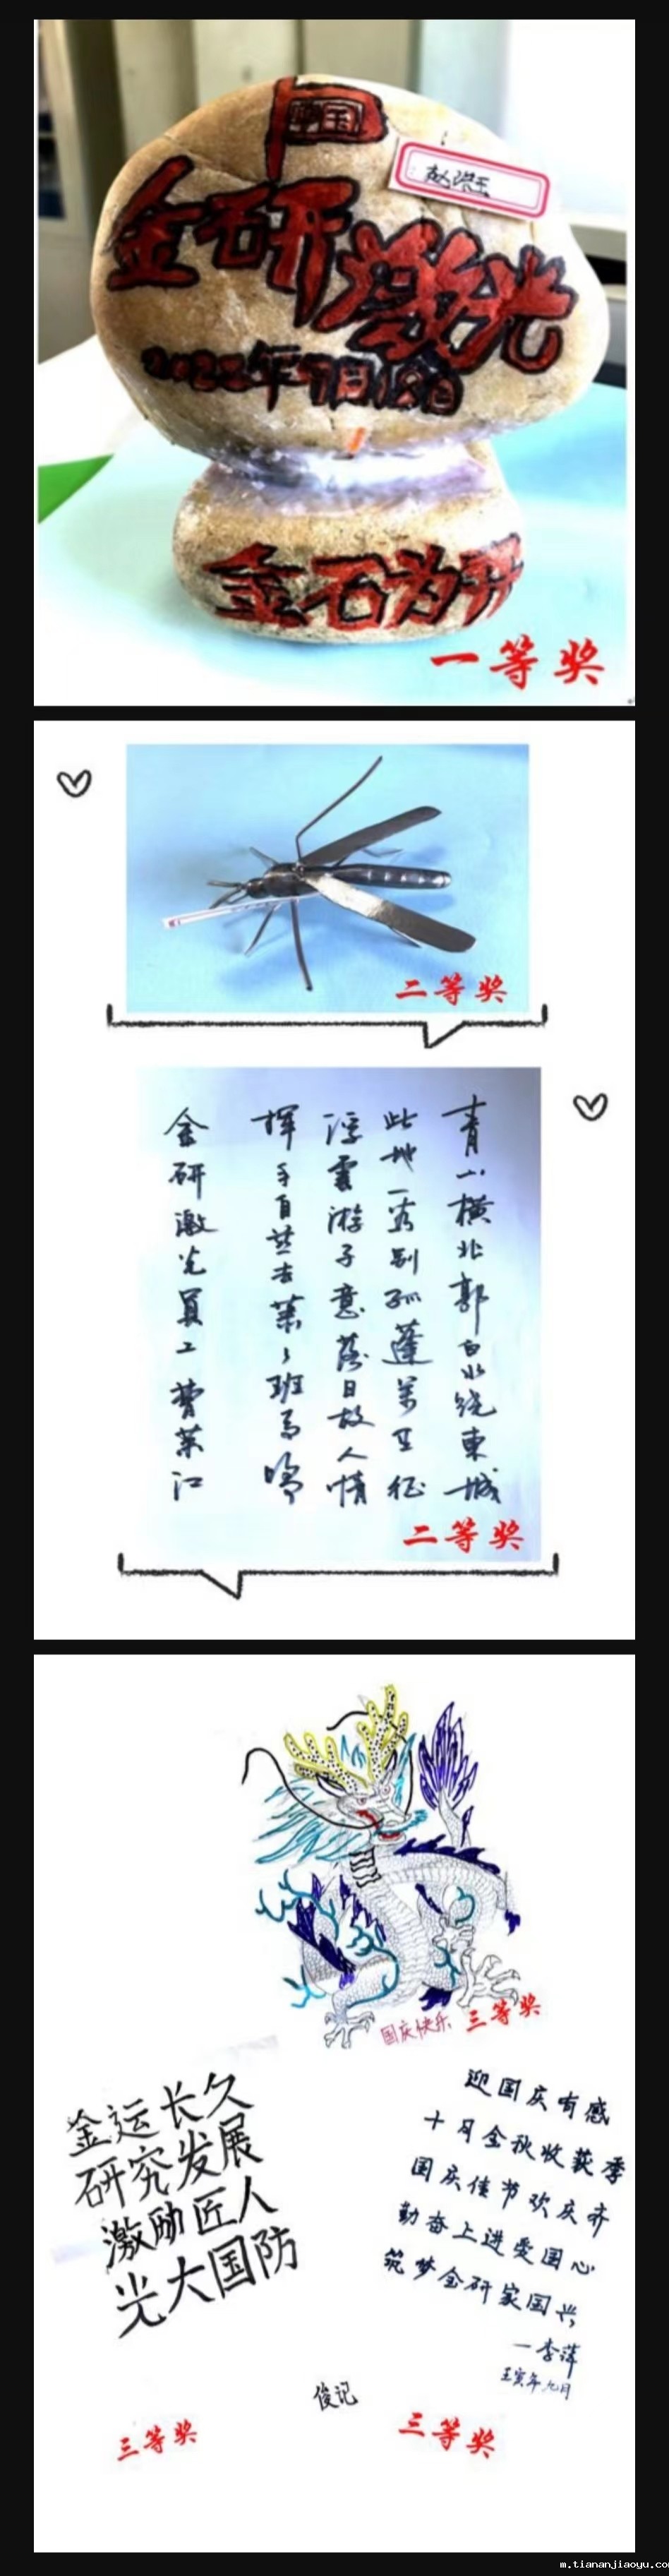 中国
赵洪玉
金石研激光
2022年9月18日
金石为开
一等奖
二等奖
青山横北郭白水绕東城
此地一为别孤蓬萬里征
浮雲游子意落日故人情
挥手自兹去萧々班马鸣
金研激光員工曹荣江
二等奖
国庆快乐
三等奖
金运长久
研究发展
激励匠人
光大国防
俊记
三等奖
迎国庆有感
十月金秋收获季
国庆佳节欢庆齐
勤奋上进爱国心
筑梦金研家国兴
一李萍
壬寅年九月
三等奖
m.tiananjiaoyu.co